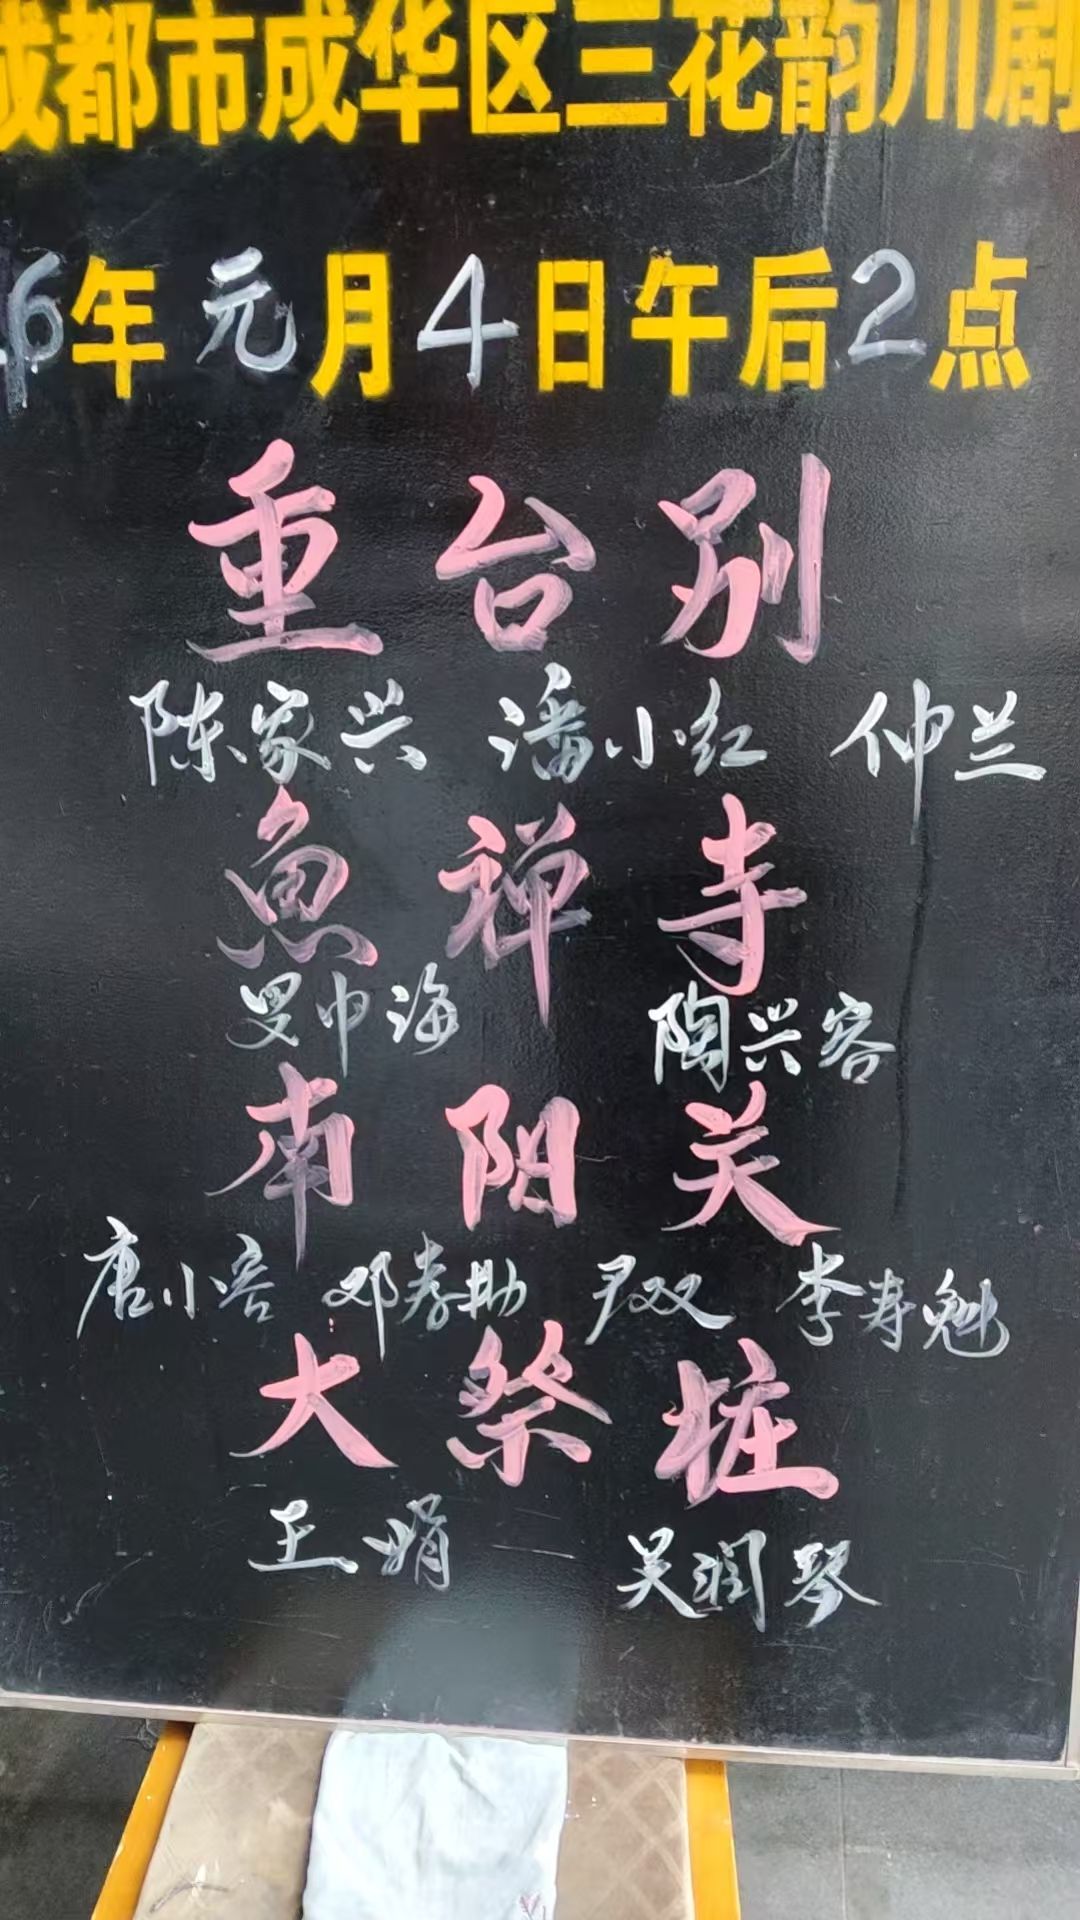 成都市成华区三花韵川剧
26年元月4日午后2点
重台别
陈家兴 潘小红 仲兰
鱼禅寺
叟巾海 陶兴容
南阳关
唐小容 邓孝助 尹双双 李寿魁
大祭桩
王娟 吴润琴